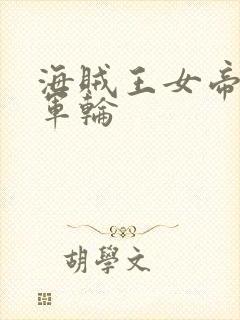 海賊王女帝
軍輪
胡學文